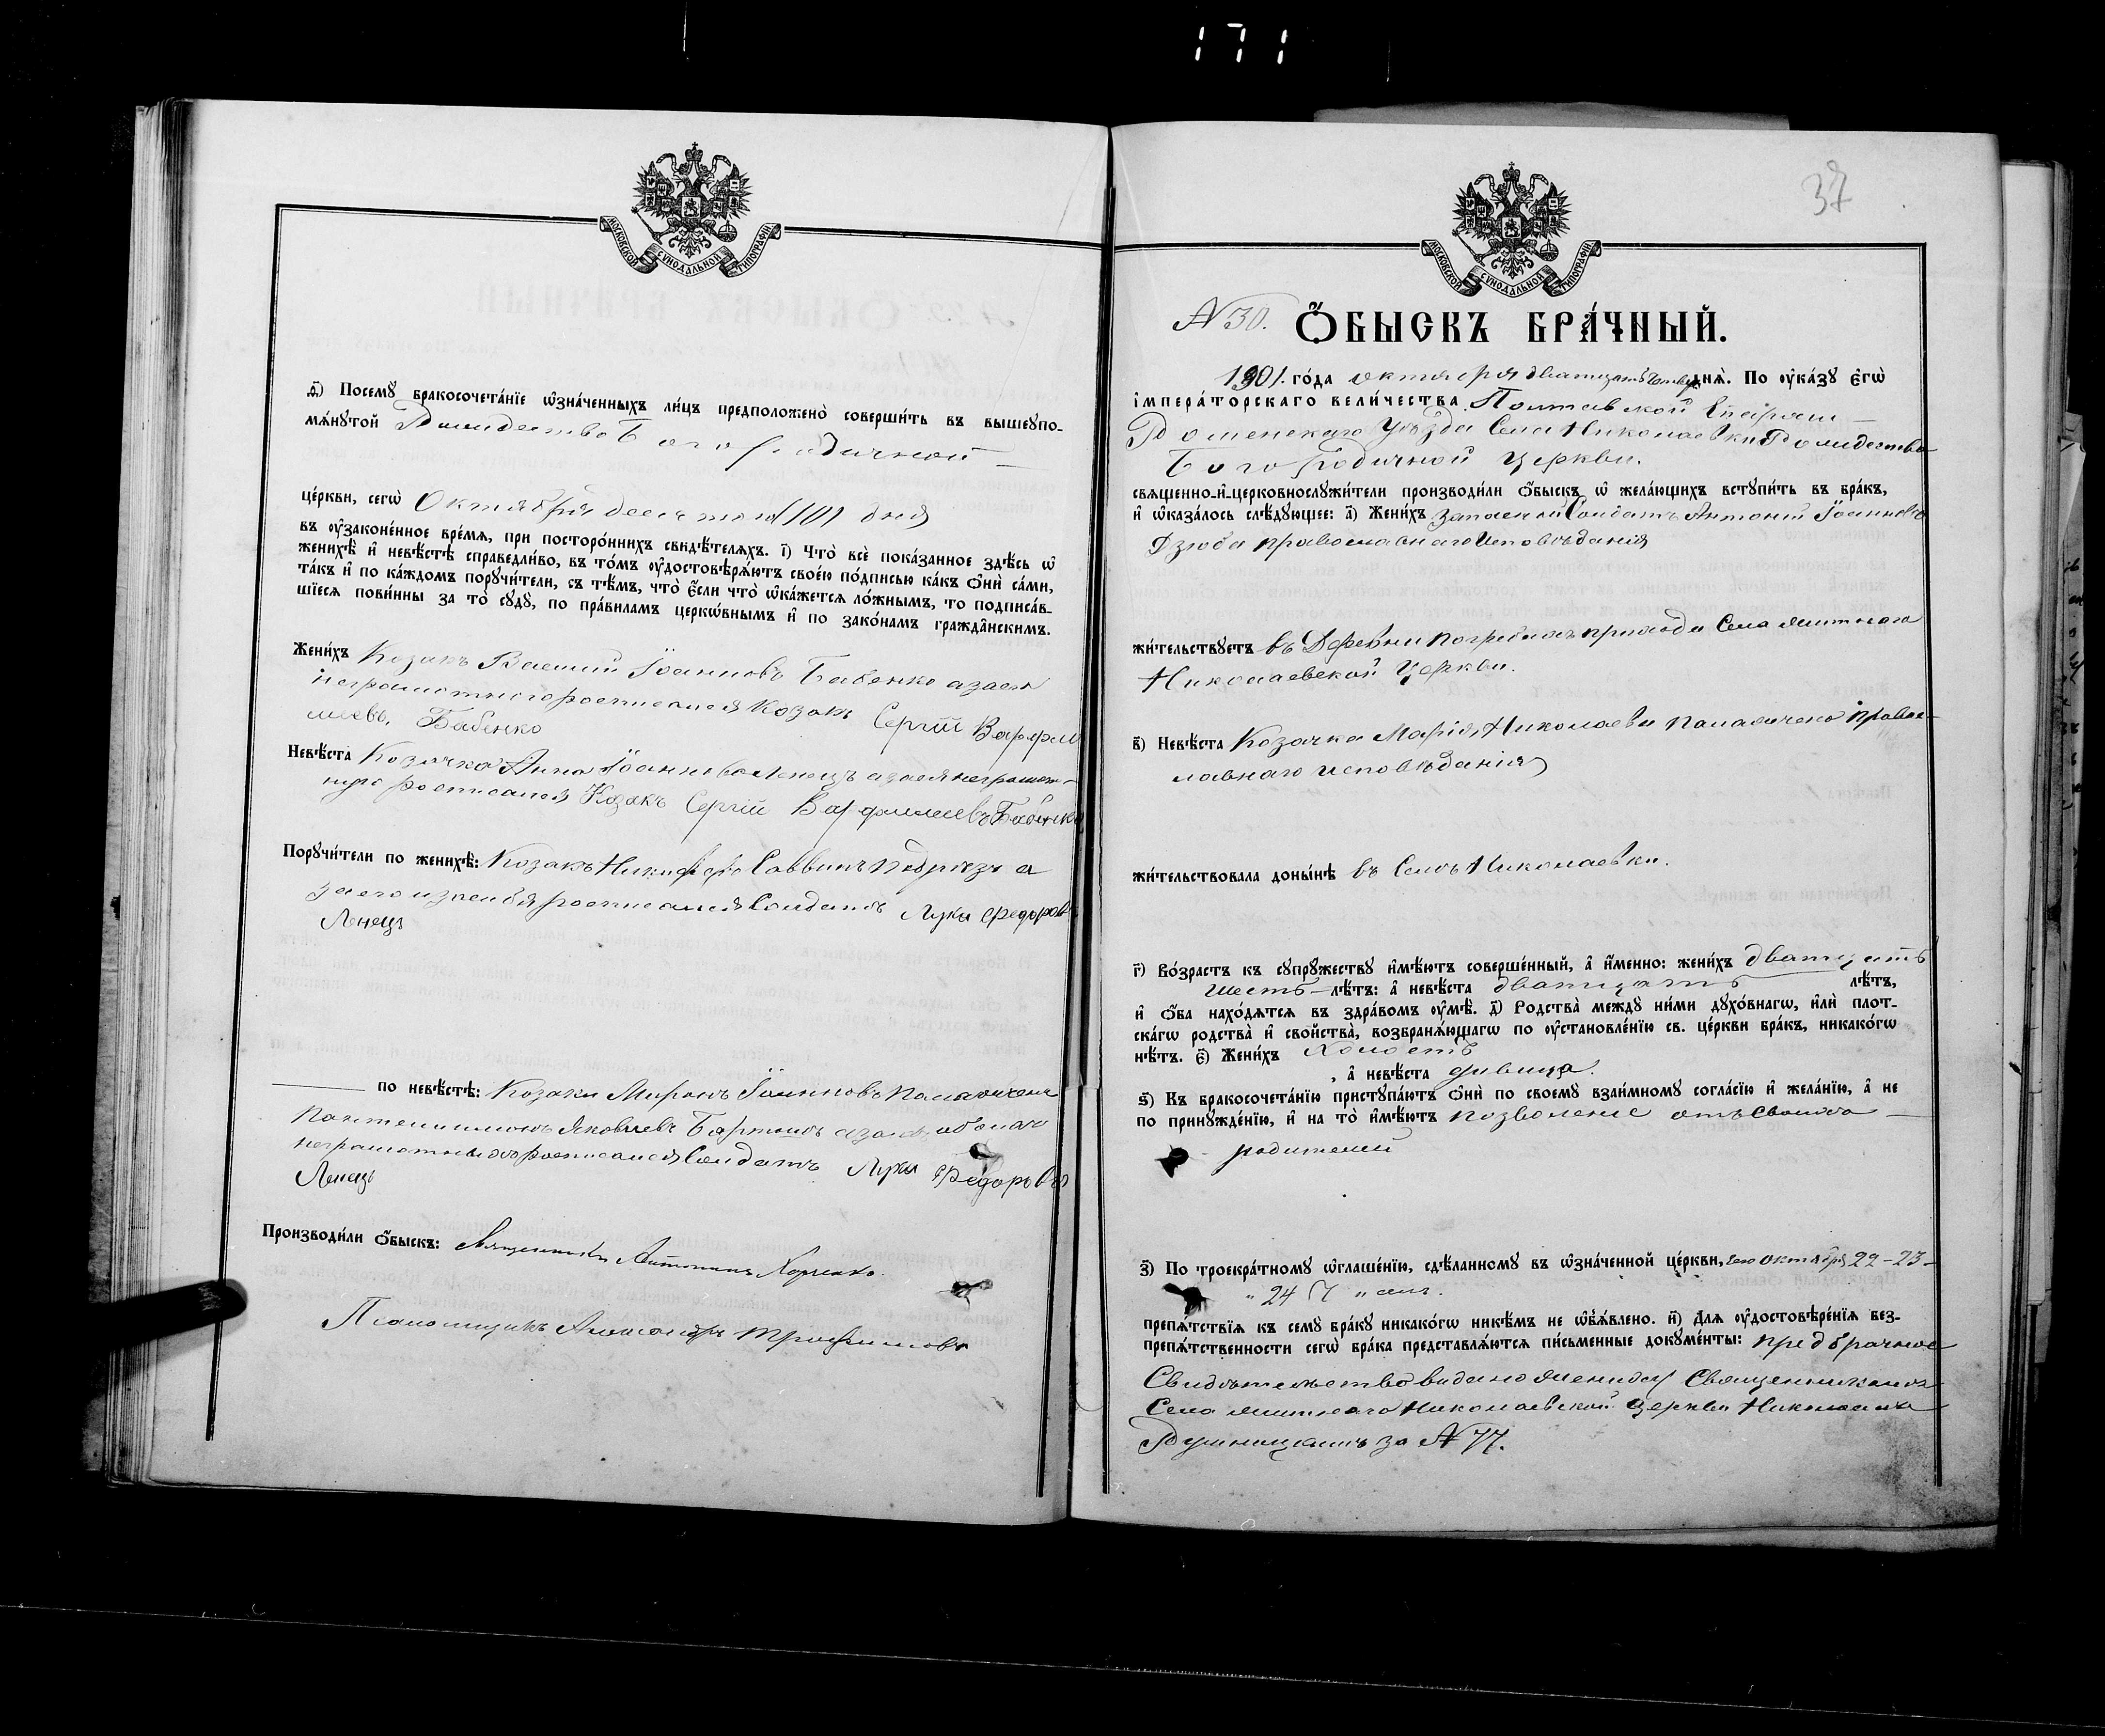 171
МОСКОВСКОЙ СѴНОДАЛЬНОЙ ТИПОГРАФІИ
д҃) Посемꙋ̀ бракосочета́нїе ѡ҆зна́ченныхъ ли́цъ предположено̀ соверши́ть въ вышеꙋпо-
мѧ́нꙋтой Рождество Богородичной
це́ркви, сегѡ̀ Октября дня
въ ᲂу҆зако́ненное вре́мѧ, при посторо́ннихъ свидѣ́телѧхъ. і҃) Что̀ всѐ пока́занное здѣ́сь ѡ҆
женихѣ̀ и҆ невѣ́стѣ справедли́во, въ то́мъ ᲂу҆достовѣрѧ́ютъ свое́ю по́дписью ка́къ ѻ҆нѝ са́ми,
та́къ и҆ по ка́ждомъ порꙋчи́тели, съ тѣ́мъ, что̀ є҆́сли что̀ ѡ҆ка́жется ло́жнымъ, то подписа́в-
шїесѧ пови́нны за то̀ сꙋдꙋ̀, по пра́виламъ церкѡ́внымъ и҆ по зако́намъ гражда̑нскимъ.
Жени́хъ Козакъ Василій Іоанновъ Бабенко а за его
неграмотного росписался козакъ Сергій Варфоло
меевъ. Бабенко
Невѣ́ста Козачка Анна Іоаннова Ленецъ а за ея неграмот-
ную росписался Козакъ Сергій Варфоломеевъ Бабенко
Порꙋчи́тели по женихѣ̀: Козакъ Никифоръ Саввинъ Подрезъ а
за его росписался Солдатъ Лука Федоровъ
Ленецъ
по невѣ́стѣ: Козаки Миронъ Іоанновъ
Пантелеимонъ Яковлевъ а за ихъ обоихъ
неграмотныхъ росписался Солдатъ Лука Федоровъ
Ленецъ
Производи́ли ѻ҆́быскъ: Священникъ
Псаломщикъ Александръ Трофимовъ
37
МОСКОВСКОЙ СѴНОДАЛЬНОЙ ТИПОГРАФІИ
№ 30. Ѻ҆́БЫСКЪ БРА́ЧНЫЙ.
1901. го́да октября двадцать четвер днѧ̀. По ᲂу҆ка́зꙋ є҆гѡ̀
і҆мпера́торскаго вели́чества Полтавской Епархіи
Роменскаго Уѣзда Села Николаевки Рождество
Богородичной Церкви.
свѧщенно-и҆-церковнослꙋжи́тели производи́ли ѻ҆́быскъ ѡ҆ жела́ющихъ встꙋпи́ть въ бра́къ,
и҆ ѡ҆каза́лось слѣ́дꙋющее: а҃) Жени́хъ запасной Солдатъ Антоній Іоанновъ
Дзюба православнаго Исповѣданія
жи́тельствꙋетъ въ Деревни Погребахъ прихода Села
Николаевской Церкви.
в҃) Невѣ́ста Козачка Марія Николаева правос-
лавнаго исповѣданія
жи́тельствовала доны́нѣ въ Селѣ Николаевки.
г҃) Во́зрастъ къ сꙋпрꙋ́жествꙋ и҆мѣ́ютъ соверше́нный, а҆ и҆́менно: жени́хъ двадцать
шесть лѣ́тъ: а҆ невѣ́ста двадцать лѣ́тъ,
и҆ ѻ҆́ба нахо́дѧтсѧ въ здра́вомъ ᲂу҆мѣ̀. д҃) Родства̀ междꙋ̀ ни́ми дꙋхо́внагѡ, и҆лѝ плот-
ска́гѡ родства̀ и҆ сво́йства̀, возбранѧ́ющагѡ по ᲂу҆становле́нїю св. це́ркви бра́къ, никако́гѡ
нѣ́тъ. є҃) Жени́хъ Холостъ
, а҆ невѣ́ста дивица.
ѕ҃) Къ бракосочета́нїю пристꙋпа́ютъ ѻ҆нѝ по своемꙋ̀ взаи́мномꙋ согла́сїю и҆ жела́нїю, а҆ не
по принꙋжде́нїю, и҆ на то̀ и҆мѣ́ютъ позволеніе отъ своихъ
родителей
з҃) По троекра́тномꙋ ѡ҆глаше́нїю, сдѣ́ланномꙋ въ ѡ҆зна́ченной це́ркви, сего октября 22-23-
" 24 "
препѧ́тствїѧ къ семꙋ̀ бра́кꙋ никако́гѡ никѣ́мъ не ѡ҆б̾ѧ́влено. и҃) Длѧ̀ ᲂу҆достовѣре́нїѧ без-
препѧ́тственности сегѡ̀ бра́ка представлѧ́ютсѧ пи́сьменные докꙋме́нты: предбрачное
Свидѣтельство видано жениху Священникомъ
Села Николаевской Церкви Николаемъ
за № 77.